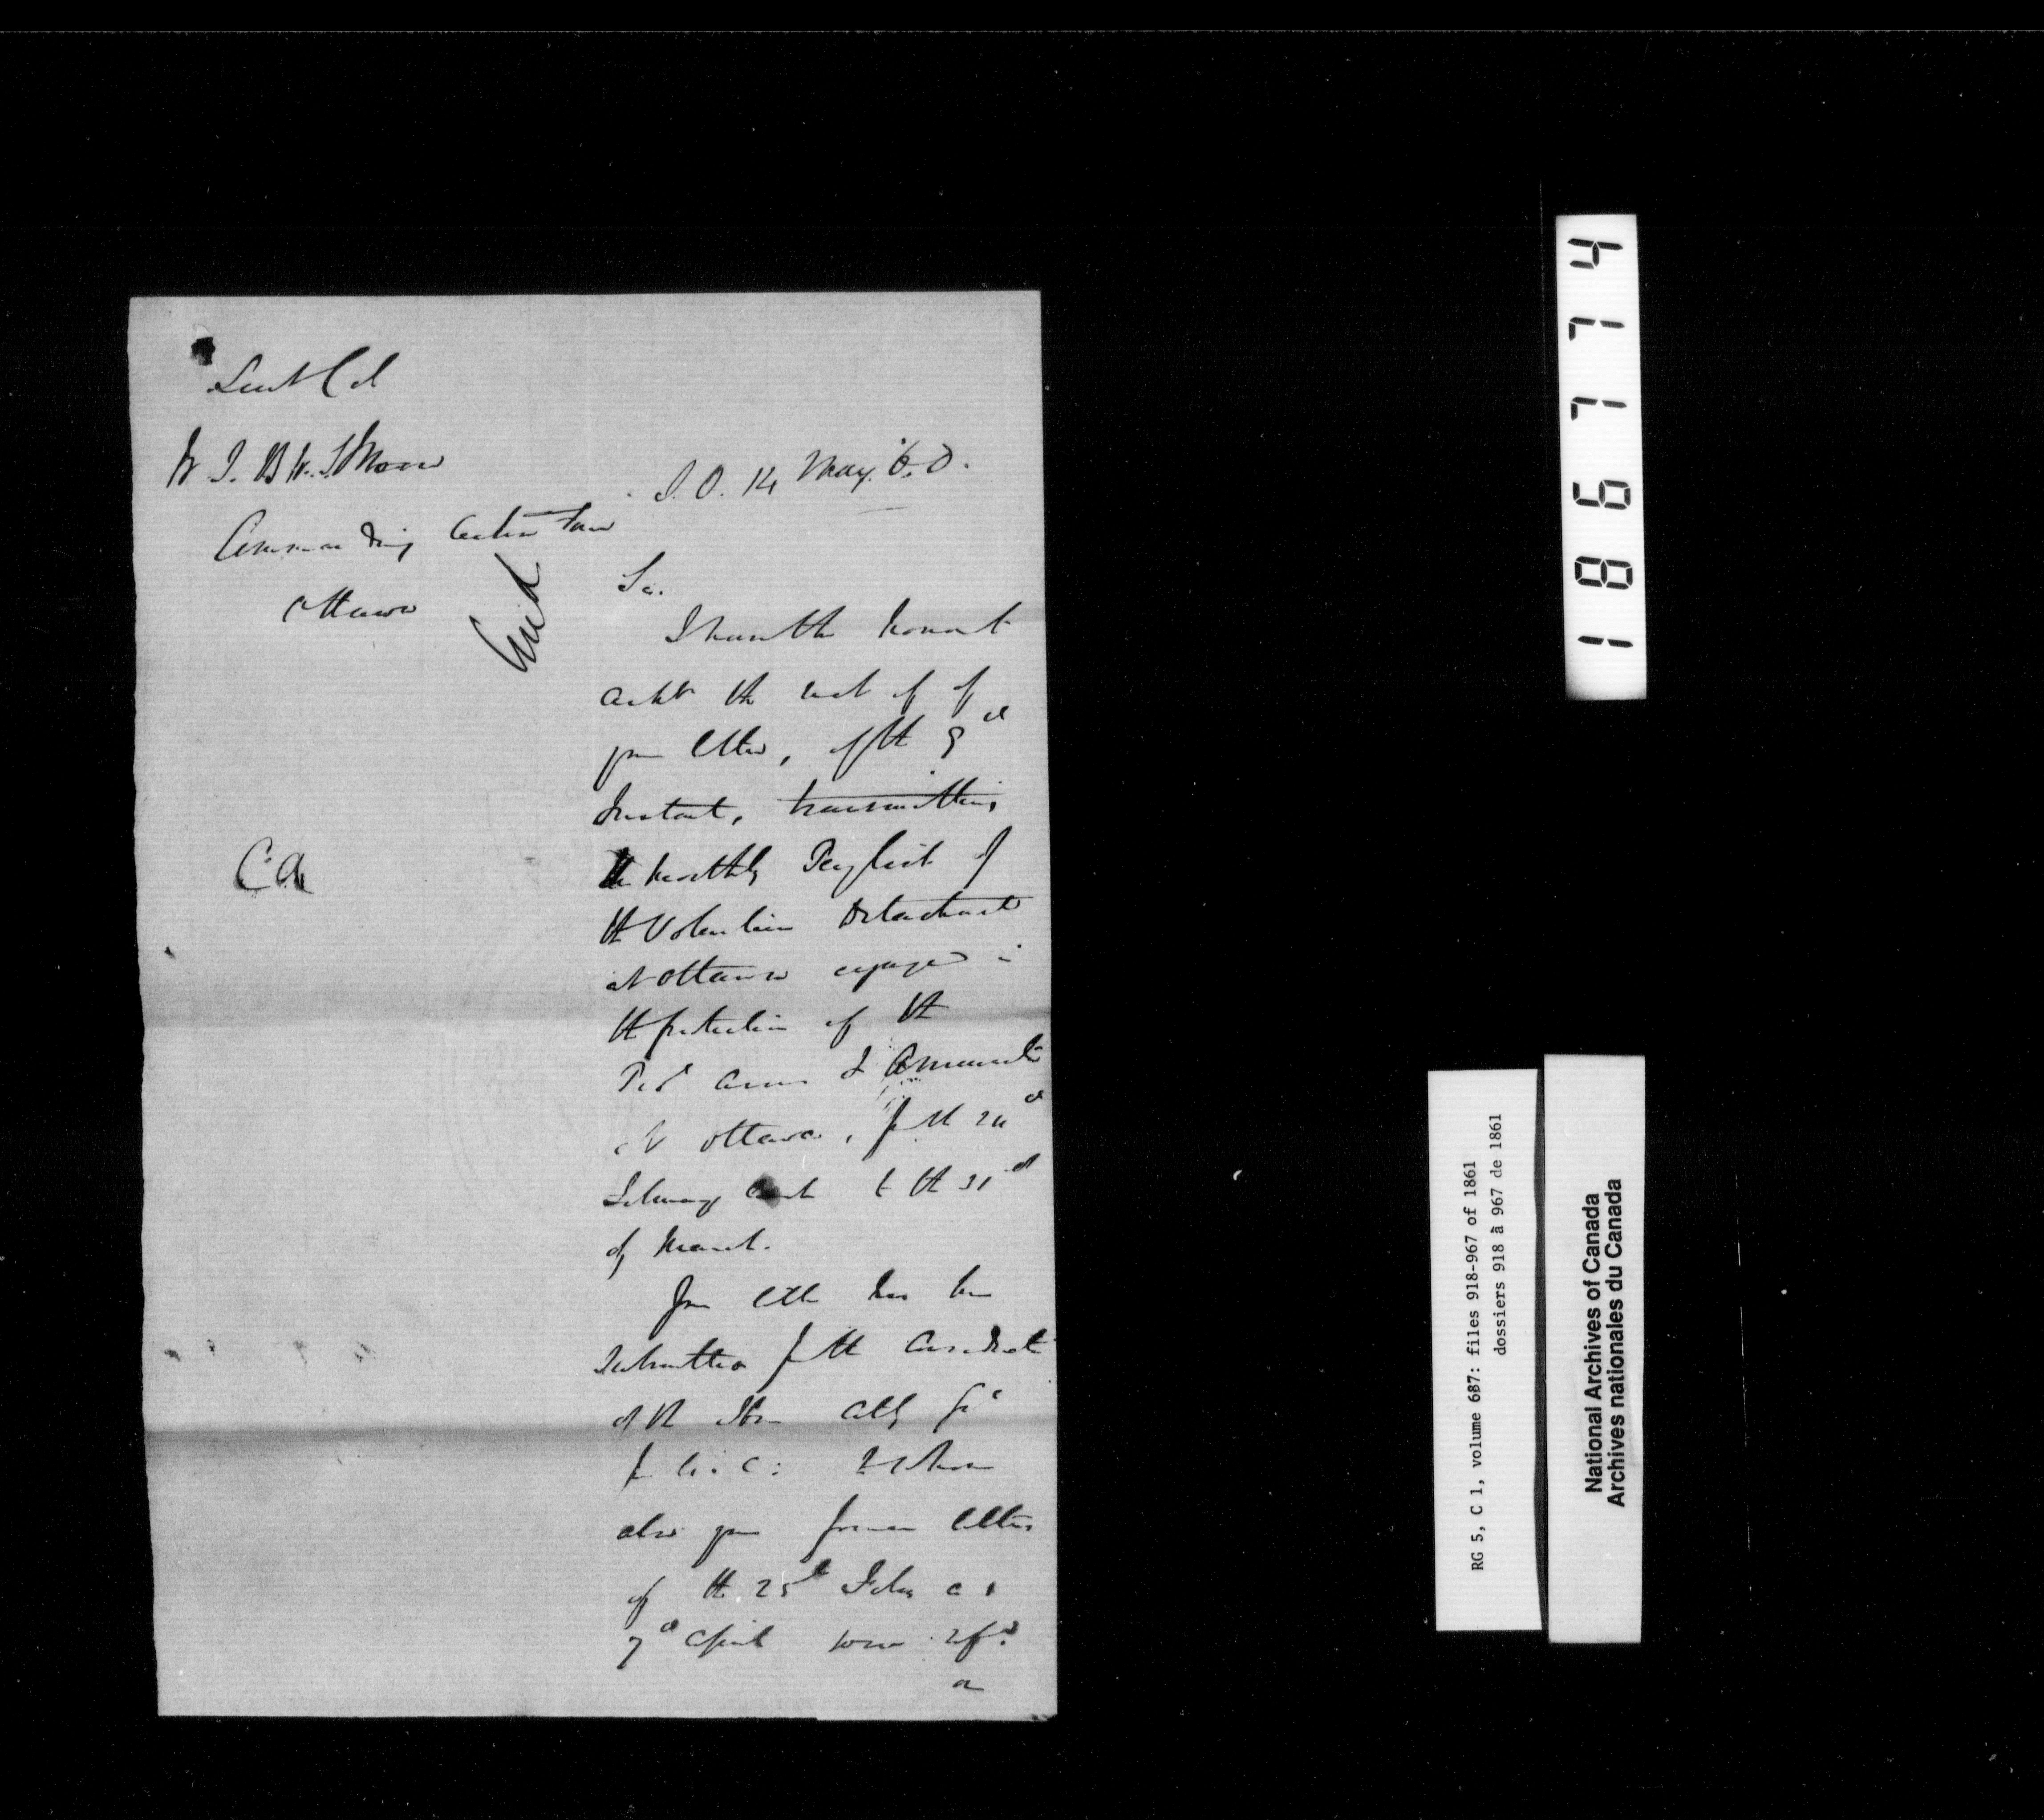 Lieut Col
Commanding Active Force
Ottawa
S.O. 14 May. 60.
Sir.
I have the honor to
ackn the rect of of
your letter, of the 9th
Instant, transmitting
the monthly Paylist of
the Volunteer Detachment
at Ottawa engaged in
the protection of the
Arms &
at Ottawa, fr the 24th
February to the 31st
of March.
Your letter has been
submitted for the
of the Hon Atty Gen
for U.C: to whom
also your former letters
of the 25th Feby &
7th April were refd
CA
1867774
RG 5, C 1, volume 687: files 918-967 of 1861
dossiers 918 à 967 de 1861
National Archives of Canada
Archives nationales du Canada